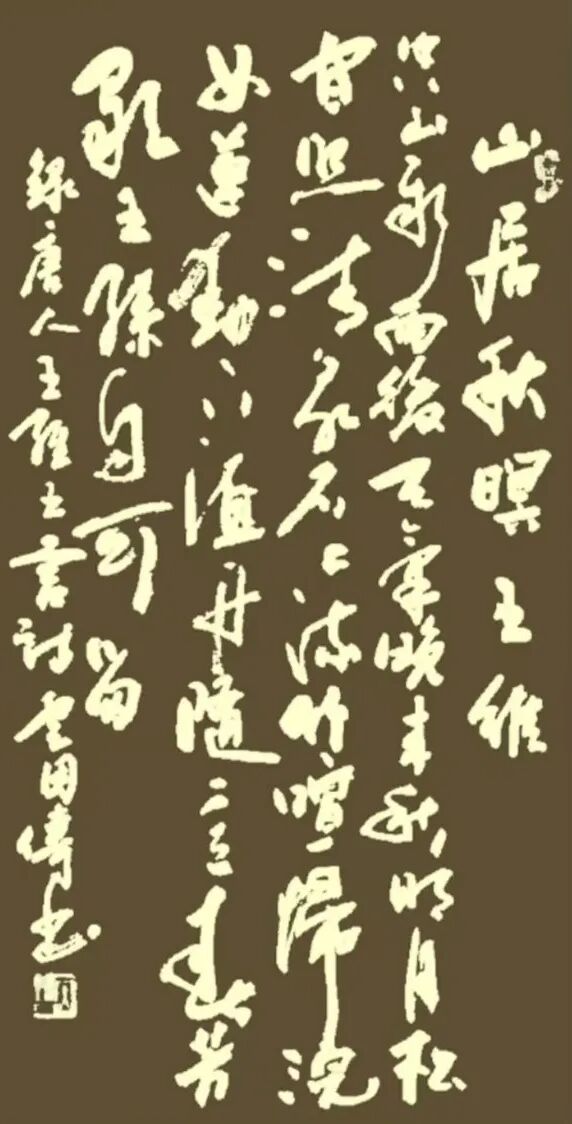 山居秋暝王維
空山新雨後天氣晚來秋明月松
間照清泉石上流竹喧歸浣
女蓮動下漁舟隨意春芳
歇王孫自可留
錄唐人王維五言詩書